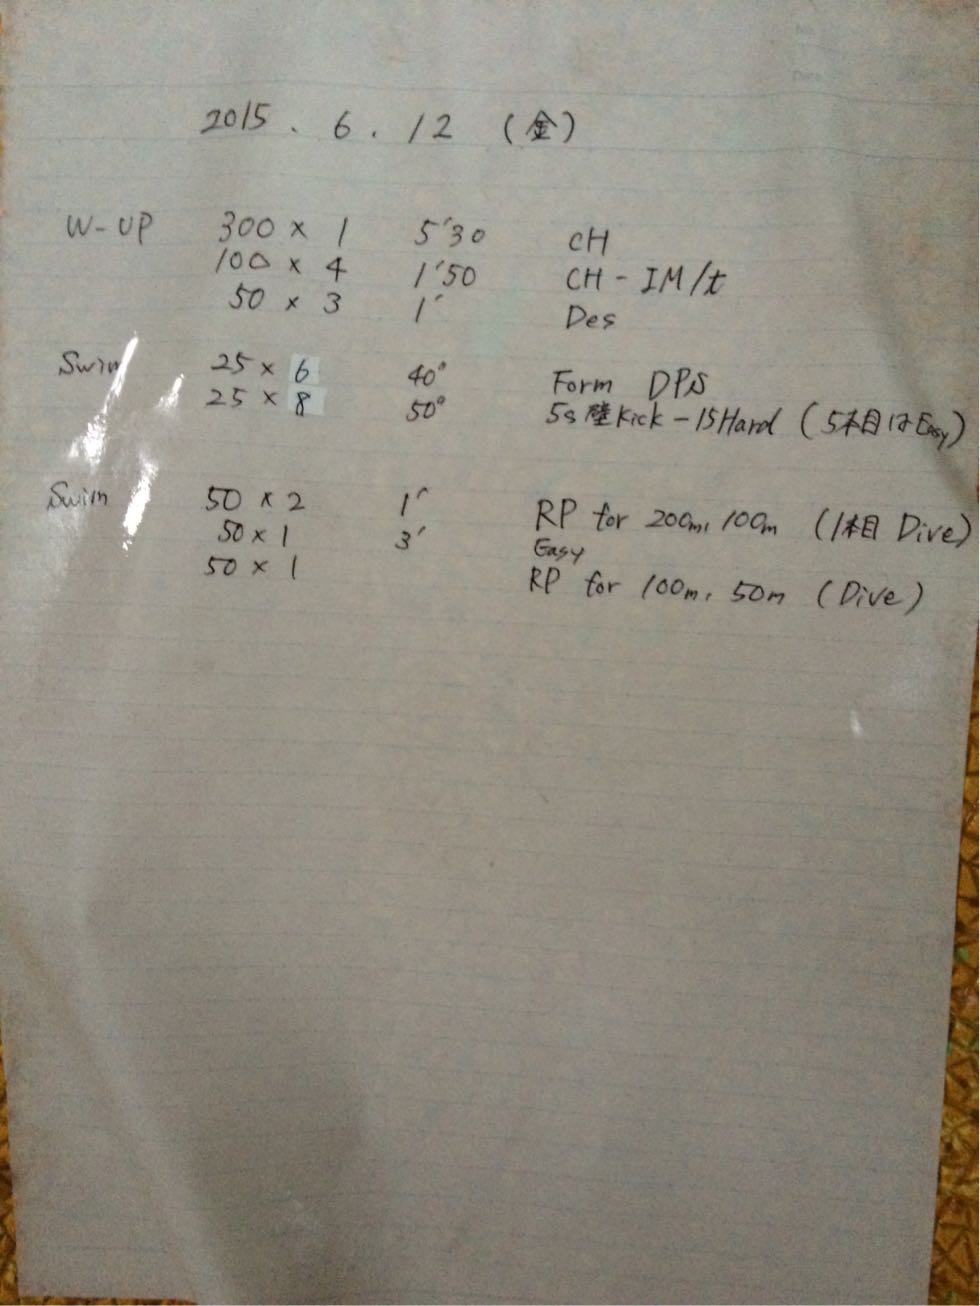 2015.6.12 (金)
W-UP 300 × 1 5'30 CH
100 × 4 1'50 CH - IM/t
50 × 3 1' Des
Swim 25 × 6 40" Form DPS
25 × 8 50" 5s壁Kick - 15Hard (5本目はEasy)
Swim 50 × 2 1' RP for 200m, 100m (1本目 Dive)
50 × 1 3' Easy
50 × 1 RP for 100m, 50m (Dive)